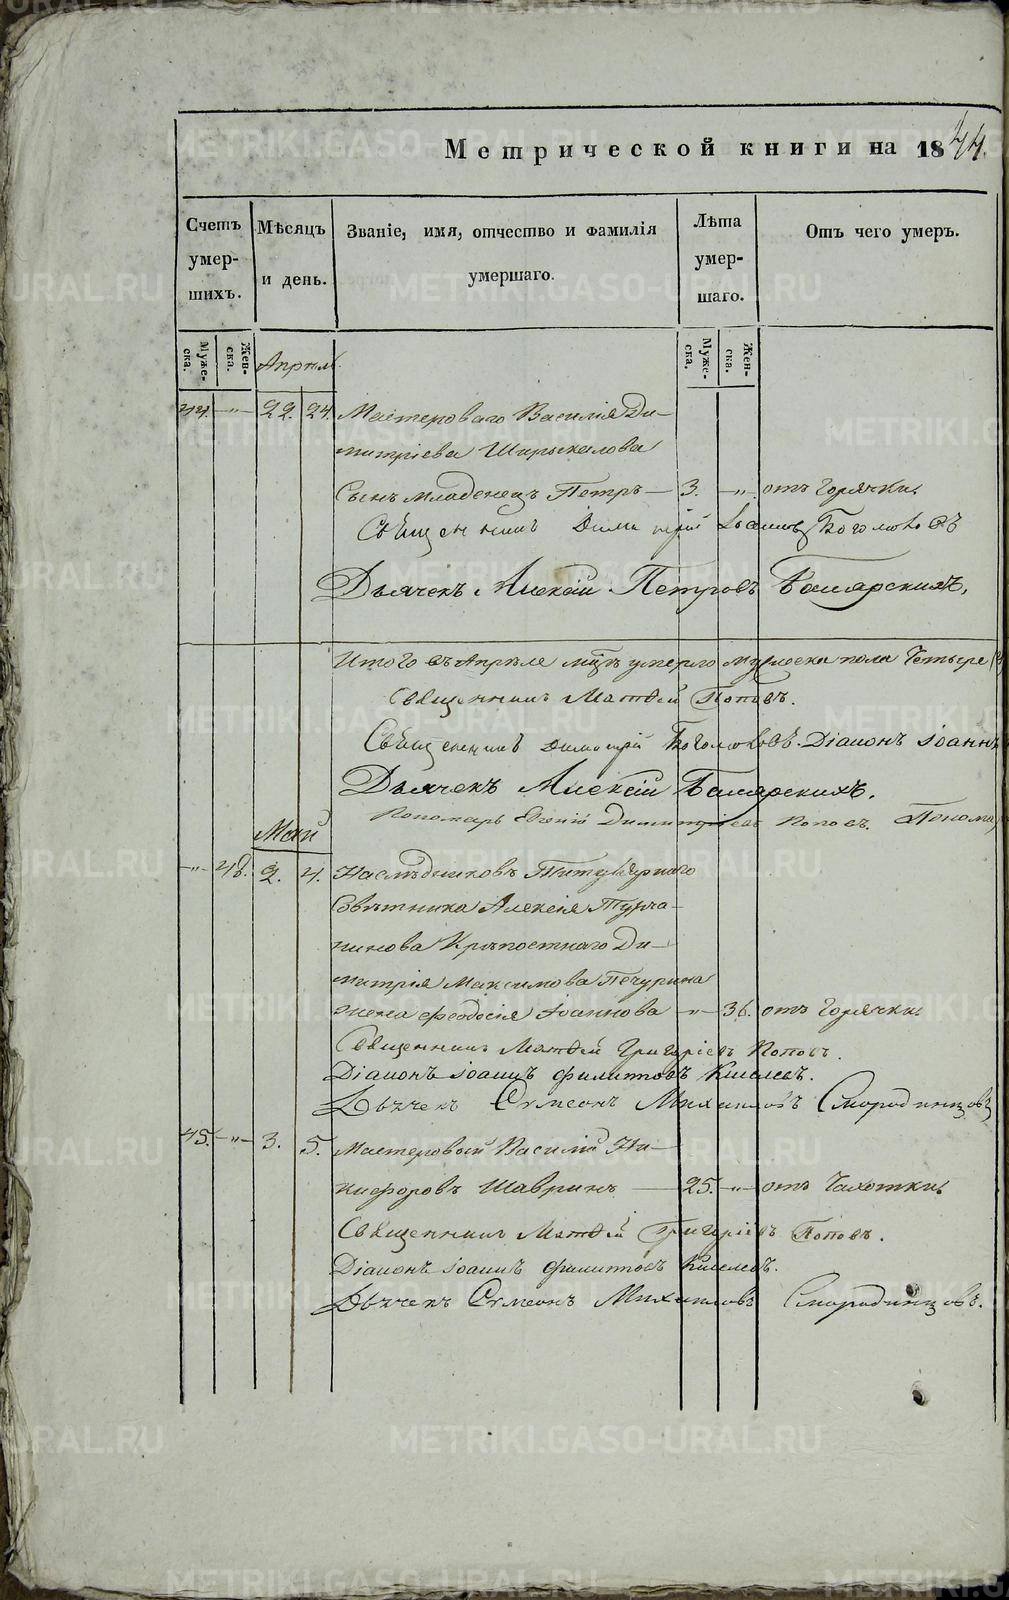 Метрической книги на 1844.
Счетъ умер-шихъ.
Мѣсяцъ и день.
Званіе, имя, отчество и фамилія умершаго.
Лѣта умер-шаго.
Отъ чего умеръ.
Муже-ска.
Жен-ска.
Муже-ска.
Жен-ска.
Апрѣль.
44. —"— 22. 24. Мастероваго Василія Ди-
митріева Ширыкалова
Сынъ младенецъ Петръ — 3. —"— отъ горячки.
Священникъ Димитрій Іоанновъ Боголюбовъ
Дьячекъ Алексій Петровъ Баларскихъ.
Итого въ Апрѣле мцѣ умерло мужеска пола Четыре (4
Священникъ Матѳей Поповъ.
Священникъ Димитрій Боголюбовъ. Діаконъ Іоаннъ
Дьячекъ Алексій Баларскихъ.
Пономарь Евгеній Димитріевъ Поповъ. Понома
Май
—"— 48. 2. 4. Наслѣдниковъ Титулярнаго
Совѣтника Алексія Турча-
нинова Крѣпостнаго Ди-
митрія Максимова Печурина
жена Феодосія Іоаннова —"— 36. отъ Горячки.
Священникъ Матѳей Григоріевъ Поповъ.
Діаконъ Іоаннъ Филиповъ Киселевъ.
Дьячекъ Сѵмеонъ Михаиловъ Смородинцовъ
45. —"— 3. 5. Мастеровый Василій Ни-
кифоровъ Шавринъ — 25. —"— отъ Чахотки.
Священникъ Матѳей Григоріевъ Поповъ.
Діаконъ Іоаннъ Филиповъ Киселевъ.
Дьячекъ Сѵмеонъ Михаиловъ Смородинцовъ.